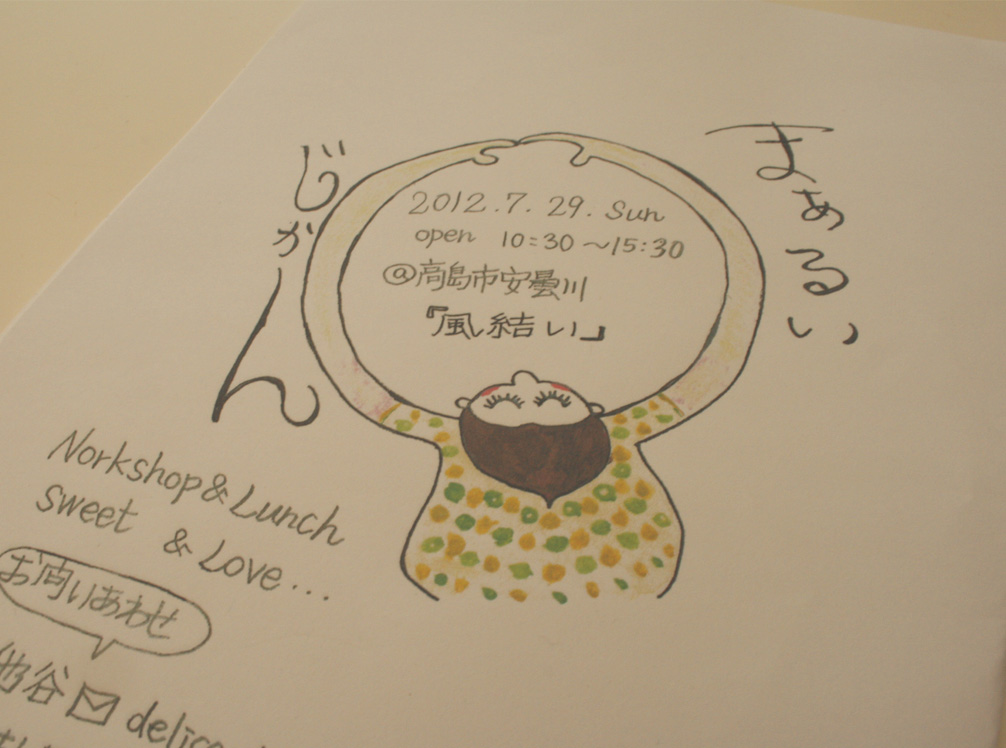 まぁるい
じかん
2012.7.29.Sun
open 10:30～15:30
@高島市安曇川
『風結い』
Norkshop&Lunch
sweet & Love...
お問いあわせ
池谷 delico